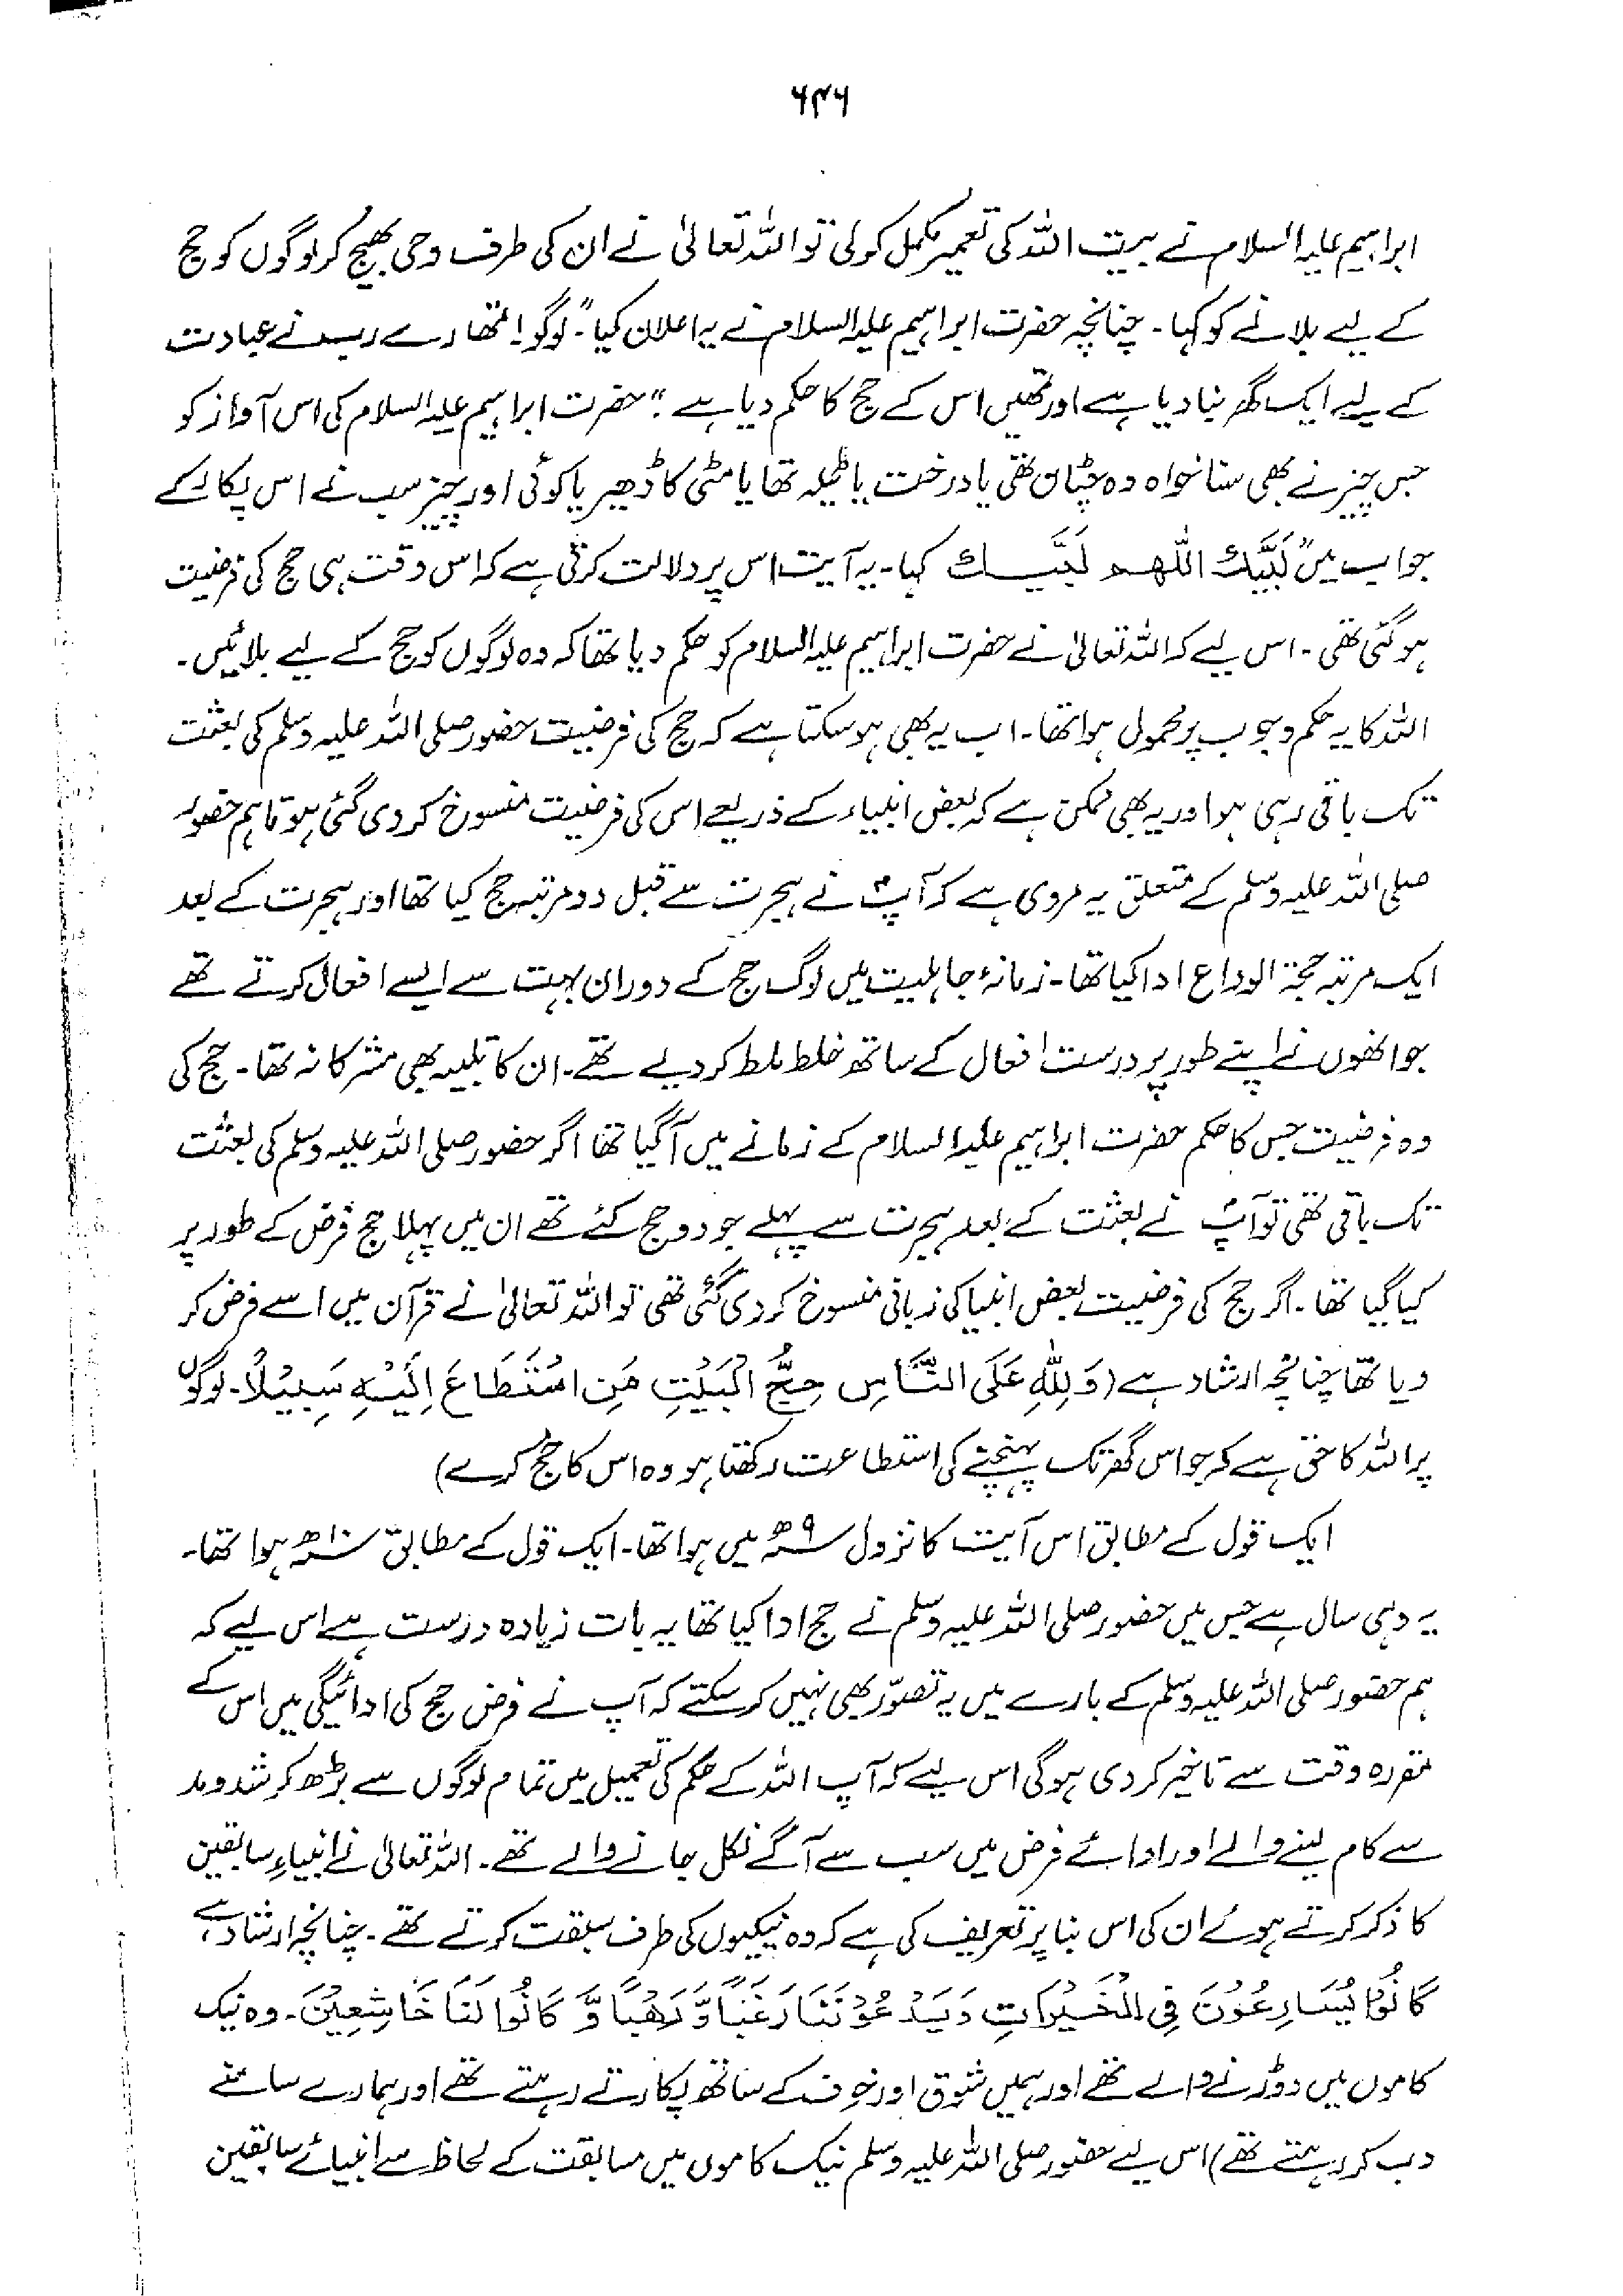 ۶۴۶
ابراہیم علیہ السلام نے بیت اللہ کی تعمیر مکمل کر لی تو اللہ تعالیٰ نے ان کی طرف وحی بھیج کر لوگوں کو حج
کے لیے بلانے کو کہا۔ چنانچہ حضرت ابراہیم علیہ السلام نے یہ اعلان کیا "۔ لوگو! تمھارے رب نے عبادت
کے لیے ایک گھر بنا دیا ہے اور تمھیں اس کے حج کا حکم دیا ہے"۔ حضرت ابراہیم علیہ السلام کی اس آواز کو
جس چیز نے بھی سنا خواہ وہ چٹان تھی یا درخت یا ٹیلہ تھا یا مٹی کا ڈھیر یا کوئی اور چیز سب نے اس پکار کے
جواب میں" لَبَّيْكَ اللّٰھم لَبَّيك کہا۔ یہ آیت اس پر دلالت کرتی ہے کہ اس وقت ہی حج کی فرضیت
ہو گئی تھی۔ اس لیے کہ اللہ تعالیٰ نے حضرت ابراہیم علیہ السلام کو حکم دیا تھا کہ وہ لوگوں کو حج کے لیے بلائیں۔
اللہ کا یہ حکم وجوب پر محمول ہوا تھا۔ اب یہ بھی ہو سکتا ہے کہ حج کی فرضیت حضور صلی اللہ علیہ وسلم کی بعثت
تک باقی رہی ہو اور یہ بھی ممکن ہے کہ بعض انبیاء کے ذریعے اس کی فرضیت منسوخ کر دی گئی ہو تاہم حضور
صلی اللہ علیہ وسلم کے متعلق یہ مروی ہے کہ آپؐ نے ہجرت سے قبل دو مرتبہ حج کیا تھا اور ہجرت کے بعد
ایک مرتبہ حجۃ الوداع ادا کیا تھا۔ زمانۂ جاہلیت میں لوگ حج کے دوران بہت سے ایسے افعال کرتے تھے
جو انھوں نے اپنے طور پر درست افعال کے ساتھ خلط ملط کر دیے تھے۔ ان کا تلبیہ بھی مشرکانہ تھا۔ حج کی
وہ فرضیت جس کا حکم حضرت ابراہیم علیہ السلام کے زمانے میں آگیا تھا اگر حضور صلی اللہ علیہ وسلم کی بعثت
تک باقی تھی تو آپؐ نے بعثت کے بعد ہجرت سے پہلے جو دو حج کئے تھے ان میں پہلا حج فرض کے طور پر
کیا گیا تھا۔ اگر حج کی فرضیت بعض انبیا کی زبانی منسوخ کر دی گئی تھی تو اللہ تعالیٰ نے قرآن میں اسے فرض کر
دیا تھا چنانچہ ارشاد ہے (وَلِلّٰهِ عَلَى النَّاسِ حِجُّ الْبَيْتِ مَنِ اسْتَطَاعَ اِلَيْهِ سَبِيْلًا۔ لوگوں
پر اللہ کا حق ہے کہ جو اس گھر تک پہنچنے کی استطاعت رکھتا ہو وہ اس کا حج کرے)
ایک قول کے مطابق اس آیت کا نزول ۹ھ میں ہوا تھا۔ ایک قول کے مطابق ۱۰ھ ہوا تھا۔
یہ وہی سال ہے جس میں حضور صلی اللہ علیہ وسلم نے حج ادا کیا تھا یہ بات زیادہ درست ہے اس لیے کہ
ہم حضور صلی اللہ علیہ وسلم کے بارے میں یہ تصوّر بھی نہیں کر سکتے کہ آپ نے فرض حج کی ادائیگی میں اس کے
مقررہ وقت سے تاخیر کر دی ہوگی اس لیے کہ آپ اللہ کے حکم کی تعمیل میں تمام لوگوں سے بڑھ کر شد و مد
سے کام لینے والے اور ادائے فرض میں سب سے آگے نکل جانے والے تھے۔ اللہ تعالیٰ نے انبیاءِ سابقین
کا ذکر کرتے ہوئے ان کی اس بنا پر تعریف کی ہے کہ وہ نیکیوں کی طرف سبقت کرتے تھے۔ چنانچہ ارشاد ہے،
كَانُوْا يُسَارِعُوْنَ فِى الْخَيْرَاتِ وَيَدْعُوْنَنَا رَغَبًا وَّرَهَبًا وَّ كَانُوْا لَنَا خَاشِعِيْنَ۔ وہ نیک
کاموں میں دوڑنے والے تھے اور ہمیں شوق اور خوف کے ساتھ پکارتے رہتے تھے اور ہمارے سامنے
دب کر رہتے تھے) اس لیے حضور صلی اللہ علیہ وسلم نیک کاموں میں مسابقت کے لحاظ سے انبیائے سابقین